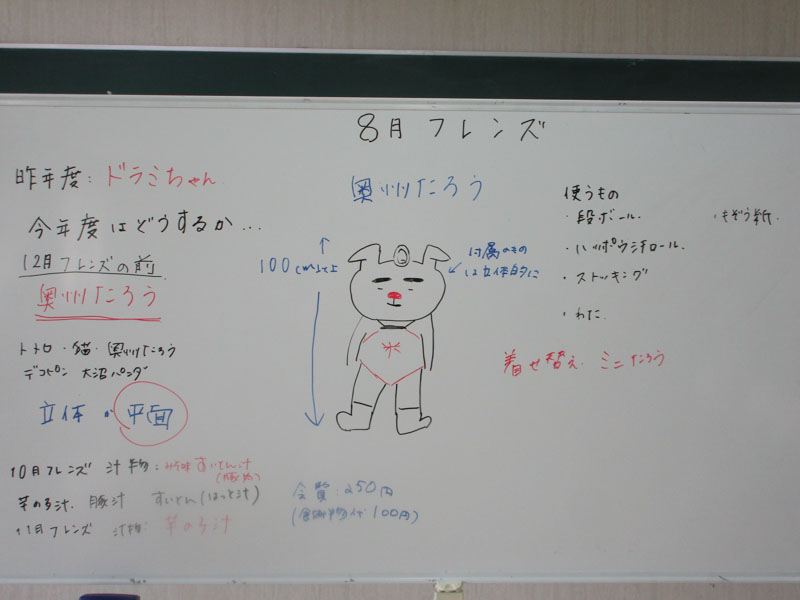 8月フレンズ
昨年度：ドラミちゃん
今年度はどうするか…
12月フレンズの前
奥州たろう
トトロ・猫・奥州たろう
デコピン 大沼パンダ
立体か平面
10月フレンズ 汁物：みそ味すいとん汁
芋の子汁、豚汁 すいとん(はっと汁)
11月フレンズ 汁物：芋の子汁
奥州たろう
100cm以上
付属のもの
は立体的に
米
会費：250円
100円)
使うもの
・段ボール
・もぞう紙
・ハッポウスチロール
・ストッキング
・わた
着せ替え ミニたろう